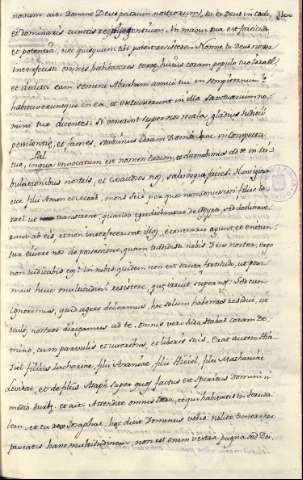 nostrorum ait: Domine Deus patrum nostrorum, tu es Deus in caelo,
et dominaris cunctis regnis gentium. In manu tua est fortitudo
et potentia, nec quisquam tibi potest resistere. Nonne tu Deus noster
interfecisti omnes habitatores terrae huius coram populo tuo Israel,
et dedisti eam semini Abraham amici tui in sempiternum?
habitaveruntque in ea, et extruxerunt in illa sanctuarium no
mini tuo dicentes: Si irruerint super nos mala, gladius iudicii
pestilentia, et fames, stabimus coram Domo hac in conspectu
tuo, in qua invocatum est nomen tuum, et clamabimus ad te in tri
bulationibus nostris, et exaudies nos, salvosque facies. Nunc igitur
ecce filii Amon et Moab, mons Seir per quos non concessisti filiis Is
rael ut transirent, quando egrediebantur de Egypto, sed declinave
runt ab eis, et non interfecerunt illos, e contrario agunt et nitun
tur eiicere nos de possessione, quam tradidisti nobis Deus noster, ergo
non iudicabis eos? In nobis quidem non est tanta fortitudo, ut possi
mus huic multitudini resistere, quae irruit super nos. Sed cum
ignoremus, quid agere debeamus, hoc solum habemus residui, ut
oculos nostros dirigamus ad te. Omnis vero Iuda stabat coram Do
mino, cum parvulis et uxoribus, et liberis suis. Erat autem Iha
ziel filius Zachariae, filii Ananiae, filii Hieiel, filii Mathaniae
levites, et de filiis Asaph super quem factus est Spiritus Domini in
medio turbae, et ait: Attendite omnis Iuda, et qui habitatis in Ierusa
lem, et tu rex Iosaphat, haec dicit Dominus vobis: nolite timere nec
paveatis hanc multitudinem, non est enim vestra pugna sed Dei.